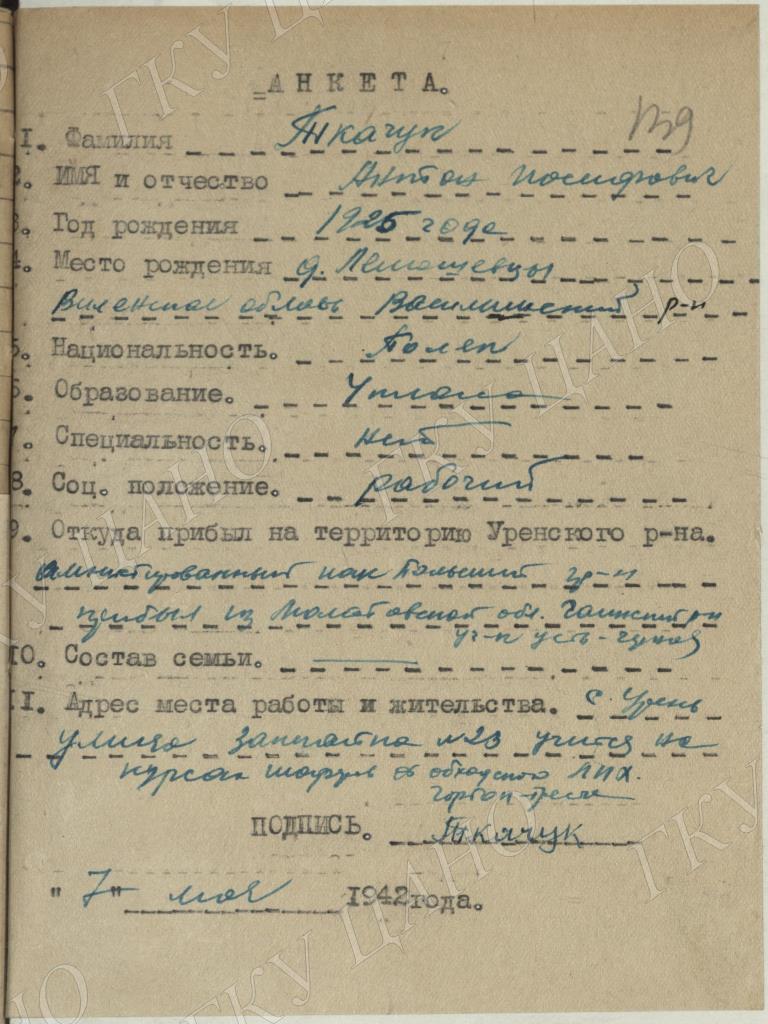 АНКЕТА.
139
1. Фамилия Ткачук
2. ИМЯ и отчество Антон Иосифович
3. Год рождения 1925 года
4. Место рождения д. 
Виленская область Василишский р-н
5. Национальность. Поляк
6. Образование. 4 класса
7. Специальность. нет
8. Соц. положение. рабочий
9. Откуда прибыл на территорию Уренского р-на.
амнистированный как Польский гр-н
прибыл из Молотовской обл. Гаинский р-н
уч-к усть-
10. Состав семьи. —
11. Адрес места работы и жительства. с. Урень
улица №23 учится на
курсах шофер ЛПХ.
ПОДПИСЬ. Ткачук
"7" мая 1942 года.
ГКУ ЦАНО